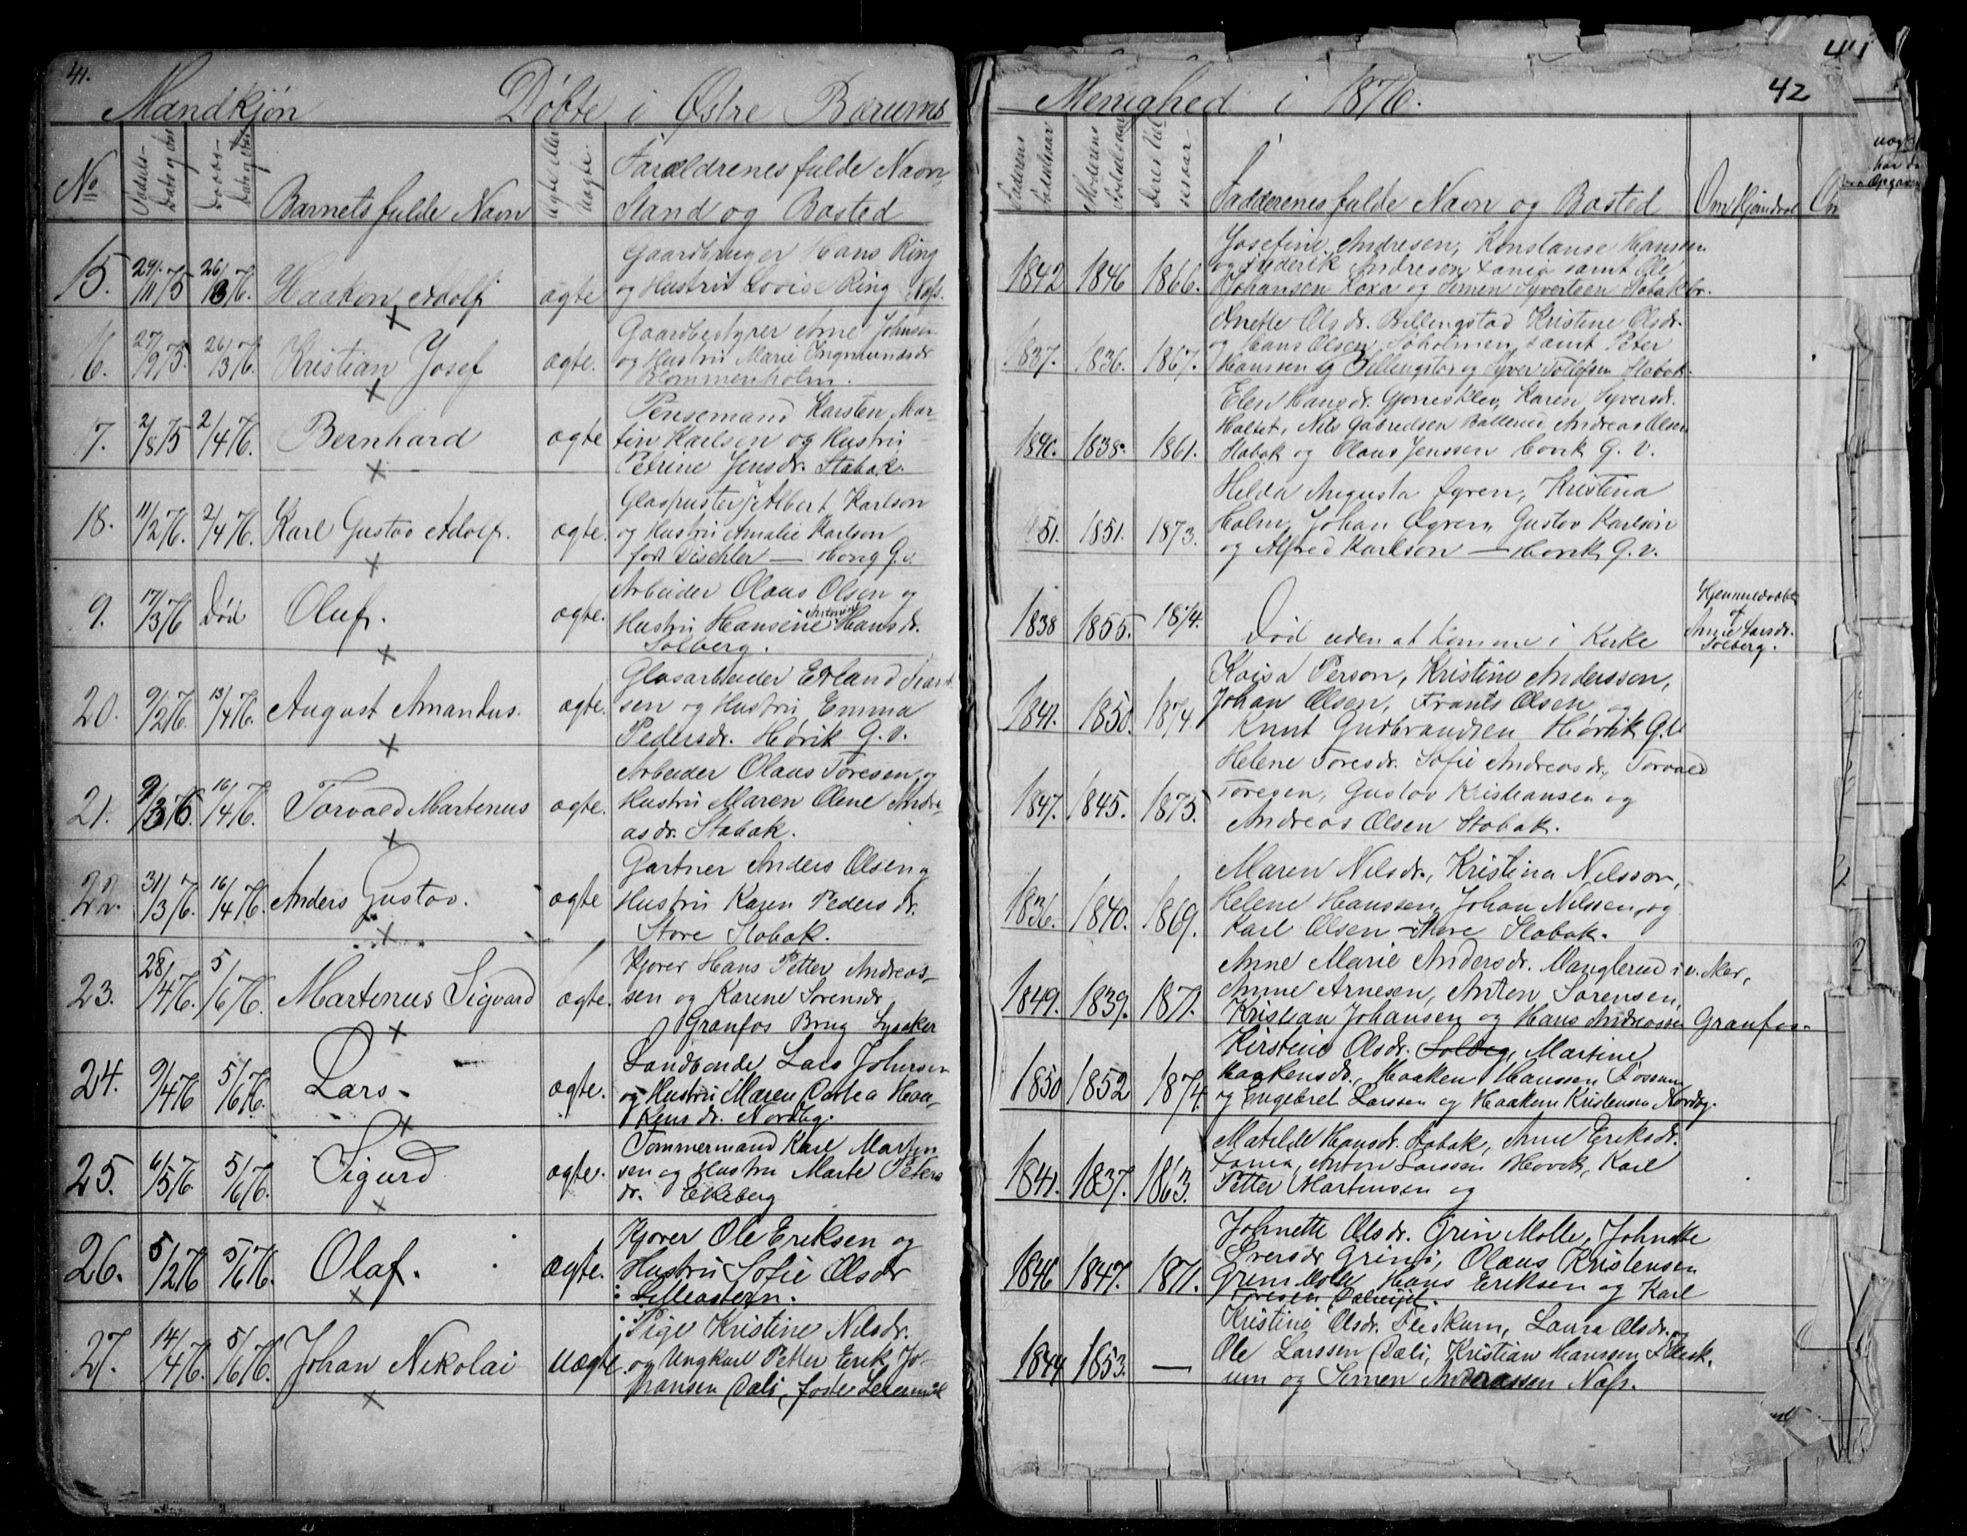 41.
Mandkjøn Døbte i Østre Bærums
No
Fødsels-
Dato og Aar
Daabs-
Dato og Aar
Barnets fulde Navn
Ægte eller
Uægte.
Forældrenes fulde Navn,
Stand og Bosted
15. 29/11 75 26/3 76. Haakon Adolf ægte
Gaardbruger Hans Ring
og Hustru Lovise Ring Næs.
6. 27/9 75. 26/3 76. Kristian Josef ægte.
Gaardbestyrer Arne Johnsen
og Hustru Marie Ingmundsdr
Blommenholm.
7. 2/8 75 2/4 76. Bernhard ægte
Pensemand Karsten Mar-
tin Karlsen og Hustru
Petrine Jensdr. Stabæk.
18. 11/2 76. 2/4 76. Karl Gustav Adolf. ægte.
Glaspuster Albert Karlson
og Hustru Amalie Karlson
født Tischler — Høvig G.v.
9. 17/3 76 Død Oluf. ægte.
Arbeider Olaus Olsen og
Hustru Hansine Hansdr.
Solberg.
20. 9/2 76. 13/4 76. August Amandus. ægte.
Glasarbeider Erland Frant-
sen og Hustru Emma
Pedersdr. Høvik G.v.
21. 9/3 76. 16/4 76. Torvald Martenus ægte.
Arbeider Olaus Toresen og
Hustru Maren Olene Andre-
asdr. Stabæk.
22. 31/3 76. 16/4 76. Anders Gustav. ægte
Gartner Anders Olsen og
Hustru Karen Pedersdr.
Store Stabæk.
23. 28/4 76. 5/6 76. Martenus Sigvard ægte.
Kjører Hans Petter Andreas-
sen og Karene Sørensdr
Granfos Brug Lysaker
24. 9/4 76 5/6 76. Lars. ægte.
Landhandl. Lars Johnsen
og Hustru Maren Dortea Haa-
kensdr. Nordby.
25. 6/5 76 5/6 76. Sigurd ægte.
Tømmermand Karl Martin-
sen og Hustru Marte Peters
dr. Ekeberg
26. 5/2 76 5/6 76. Olaf. ægte.
Kjører Ole Eriksen og
Hustru Sofie Olsdr
Lilleøstern.
27. 14/4 76. 5/6 76. Johan Nikolai uægte
Pige Kristine Nilsdr.
og Ungkarl Petter Erik Jo-
hansen Dæli, første Leiermål
41
42
Menighed i 1876.
Faderens
Fødselsaar
Moderens
Fødselsaar
Deres Viel-
sesaar
Fadderenes fulde Navn og Bosted
Om Hjemdøbt
Om
1842 1846 1866.
Josefine Andresen, Konstanse Hansen
og Frederik Andresen, samt Ole
Johansen Koxa og Simen Syvertsen Stabæk br.
1837. 1836. 1867.
Anette Olsdr. Billingstad Kristine Olsdr.
og Hans Olsen, Soholmen, samt Peter
Hanssen Billingstad og Syver Tollefsen Stabæk.
1840. 1838. 1861.
Elen Hansdr. Gjønesklev, Karen Syversdr.
Holtet, Nils Gabrielsen Ballerud, Andreas Olsen
Stabæk og Olaus Jenssen Høvik G.v.
51. 1851. 1873.
Hilda Augusta Syren, Kristina
Holm, Johan Øgren, Gustav Karlson
og Alfred Karlson — Høvik G.v.
1838 1855. 1874.
Død uden at komme i Kirke
Hjemmedøbt
af
Anne Larsdr.
Solberg.
1841. 1850. 1874
Kaisa Person, Kristine Anderssen,
Johan Olsen, Frants Olsen og
Knut Gudbrandsen Høvik G.v
1847. 1845. 1875.
Helene Toresdr. Sofie Andreasdr, Torvald
Toresen, Gustav Kristiansen og
Andreas Olsen Stabæk.
1836. 1840. 1869.
Maren Nilsdr., Kristina Nilsson,
Helene Hanssen, Johan Nilssen, og
Karl Olsen Store Stabæk.
1849. 1839. 1871.
Anne Marie Andersdr. Manglerud i v. Aker,
Anne Arnesen, Anton Sørensen,
Kristian Johansen og Hans Andreassen Granfos.
1850 1852 1874.
Kirstine Olsdr. Solberg, Martine
Haakensdr., Haaken Hanssen Fossum
og Engebret Larssen og Haaken Kristensen Nordby.
1841. 1837. 1863.
Matilde Hansdr. Stabæk, Anne Eriksdr.
Anton Larssen Høvik, Karl
Petter Martensen og
1846 1847. 1871.
Johnette Olsdr. Grini Mølle, Johnette
Iversdr Grini, Olaus Kristensen
Grini Mølle Hans Eriksen og Karl
Toresen
1844 1853. —
Kristine Olsdr. Fleskum, Laura Olsdr. og
Ole Larssen Dæli, Kristian Hanssen Flesk-
um og Simen Andreassen Næs.